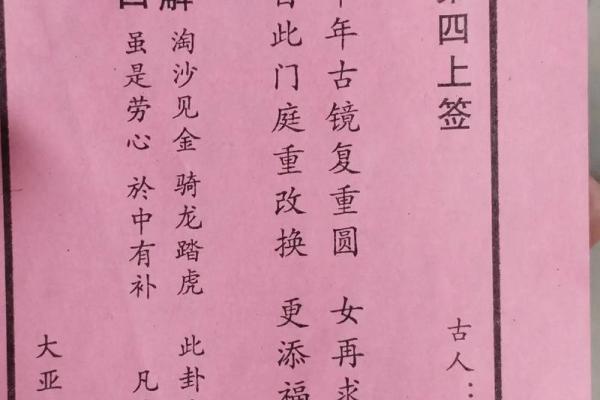 四上签
古人：
年古镜复重圆 女再求
此门庭重改换 更添福
解
淘沙见金 骑龙踏虎 此卦
虽是劳心 於中有补 凡
大亚